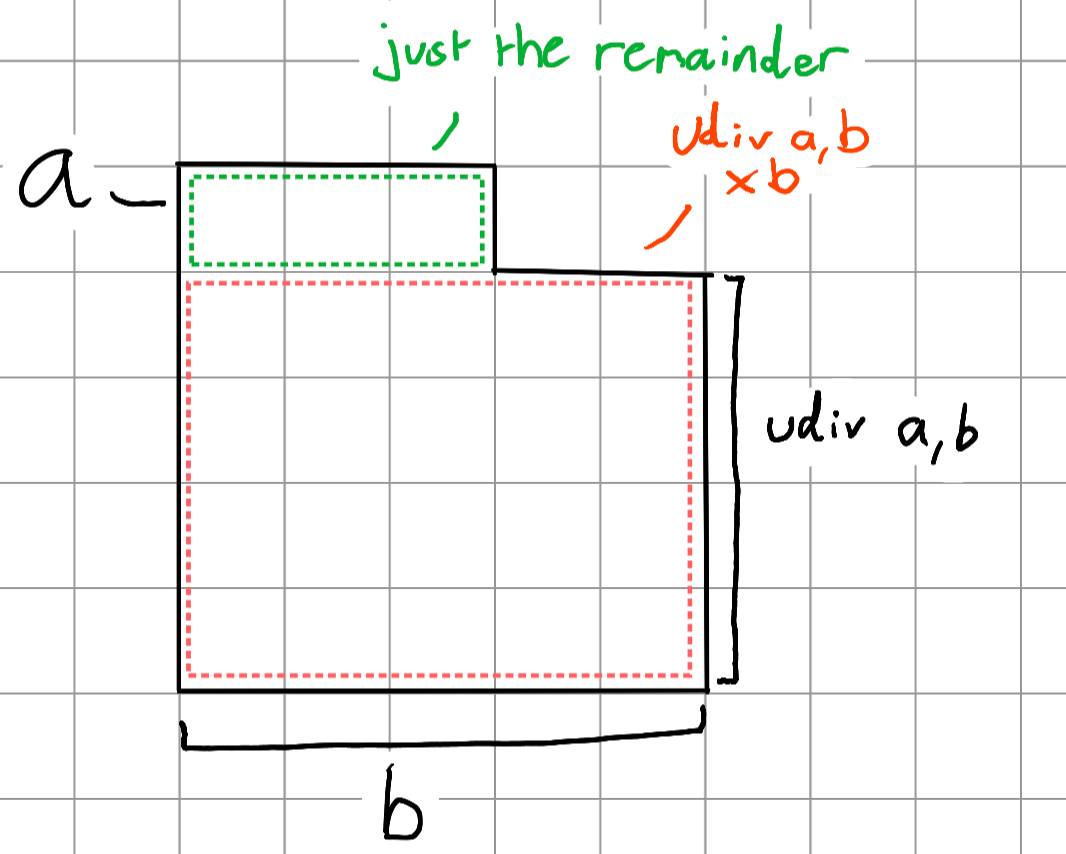 just the remainder
udiv a,b
×b
a
udiv a,b
b